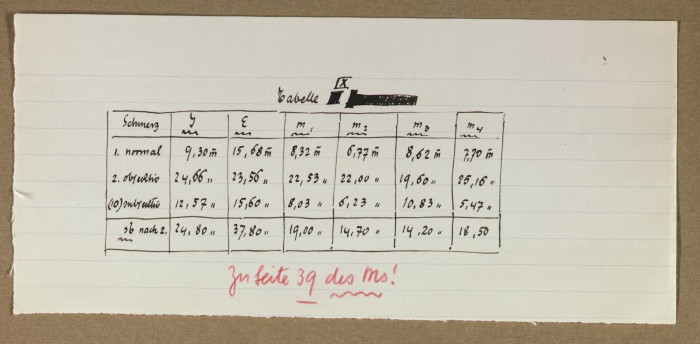 Tabelle IX
Schmerz J E m1 m2 m3 m4
1. normal 9,30 m 15,68 m 8,32 m 6,77 m 8,62 m 7,70 m
2. objectiv 24,66 " 23,56 " 22,53 " 22,00 " 19,60 " 25,16 "
(10) subjectiv 12,57 " 15,60 " 8,03 " 6,23 " 10,83 " 5,47 "
nach 2. 24,80 " 37,80 " 19,00 " 14,70 " 14,20 " 18,50
Zu Seite 39 des Ms!